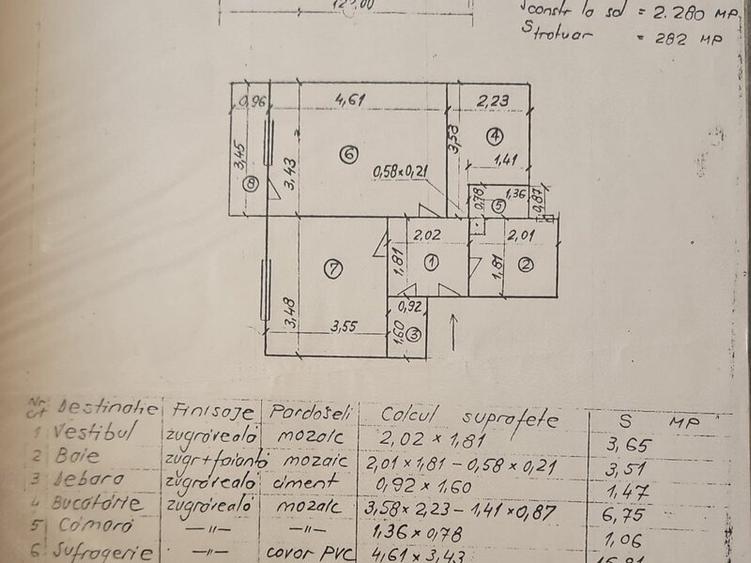 Sconstr la sol = 2.280 MP
Strotuar = 282 MP
0,96 4,61 2,23
3,45 3,43 3,58
⑥ ④ ⑧
1,41
0,58×0,21
0,78 1,36 0,87
⑤
2,02 2,01
1,81 ① 1,81 ②
⑦
3,48 3,55
0,92
1,60 ③
Nr. crt Destinatie Finisaje Pardoseli Calcul suprafete S MP
1 Vestibul zugrăveală mozaic 2,02 × 1,81 3,65
2 Baie zugr+faianță mozaic 2,01×1,81 – 0,58 × 0,21 3,51
3 Debara zugrăveală ciment 0,92 × 1,60 1,47
4 Bucătărie zugrăveală mozaic 3,58× 2,23 – 1,41 × 0,87 6,75
5 Cămară —"— —"— 1,36 × 0,78 1,06
6 Sufragerie —"— covor PVC 4,61 × 3,43